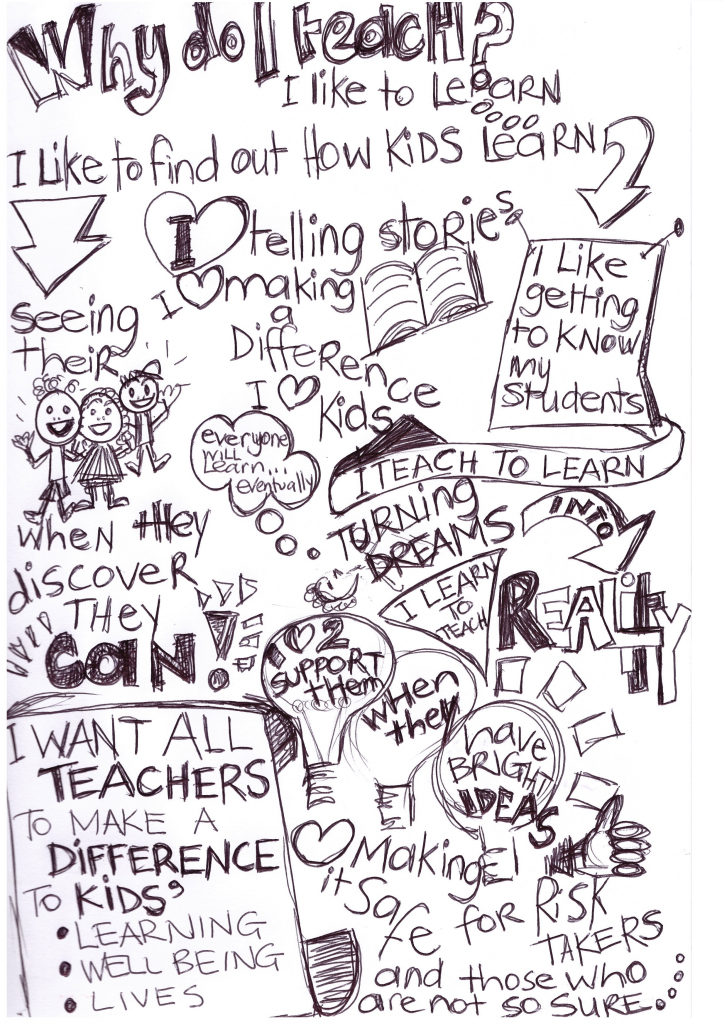 Why do I teach?
I like to LeARN
I Like to find out How KiDS LeaRN
I ♡ telling stories
I ♡ making
a
DiffeRence
I ♡ Kids
I Like
getting
to KNOW
my
Students
Seeing
their
when they
discoveR
THey
CaN!
everyone
WiLL
Learn...
eventually
I TEACH TO LEARN
TURNING
DREAMS
INTO
REALITY
I LEARN
TO
TEACH
I ♡ 2
SUPPORT
them
WHEN
they
have
BRIGHT
IDEAS
I WANT ALL
TEACHERS
TO MAKE A
DIFFERENCE
TO KIDS'
• LEARNING
• WELL BEING
• LIVES
♡ Making
it Safe for RiSK
TAKERS
and those who
are not so SURE...